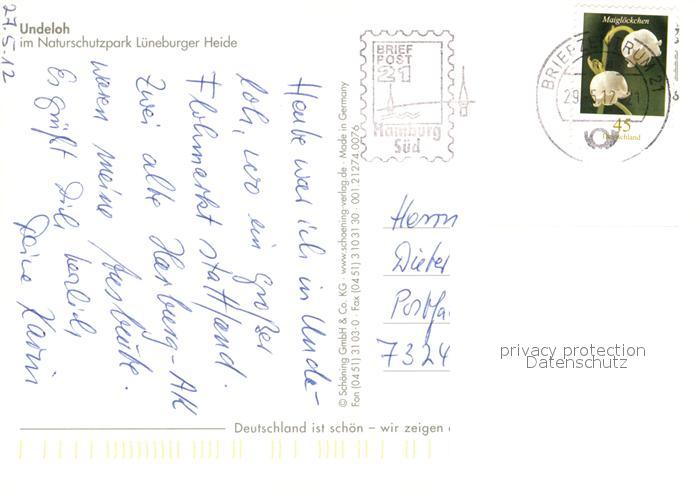 27.5.12
Undeloh
im Naturschutzpark Lüneburger Heide
Heute war ich in Unde-
loh, wo ein Großer
Flohmarkt stattfand.
Zwei alte Harburg-AK
waren meine Ausbeute.
Es grüßt Dich herzlich
Deine Karin
© Schöning GmbH & Co. KG · www.schoening-verlag.de · Made in Germany
Fon (0451) 3103-0 · Fax (0451) 3103130 · 001.21274.0076
BRIEF
POST
21
Hamburg
Süd
BRIEFZENTRUM 21
29.5.12-21
Maiglöckchen
45
Deutschland
Herrn
Dieter
Postfa
7324
privacy protection
Datenschutz
Deutschland ist schön – wir zeigen